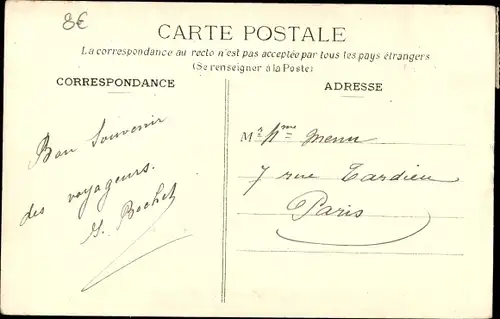 8€
CARTE POSTALE
La correspondance au recto n'est pas acceptée par tous les pays étrangers
(Se renseigner à la Poste)
CORRESPONDANCE
ADRESSE
Bon Souvenir
des voyageurs.
G. Bochet
Mr Mme Menu
7 rue Tardieu
Paris